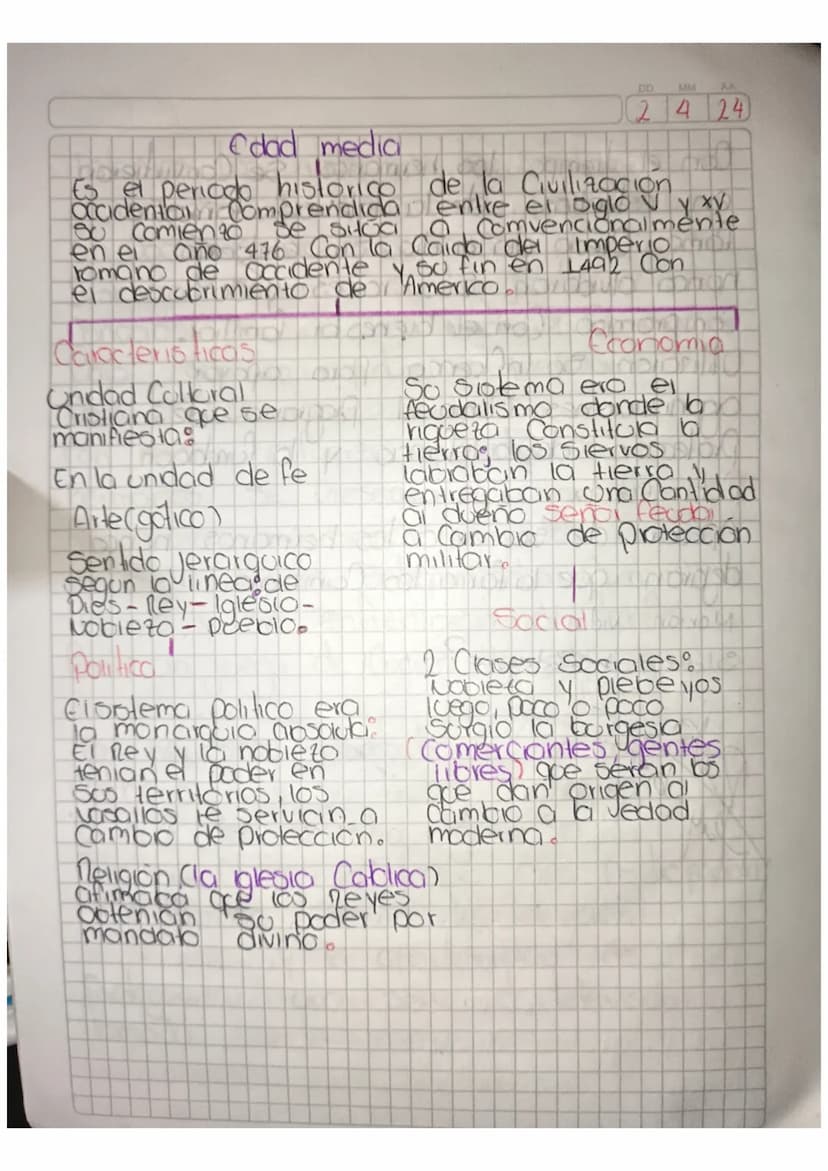 DD MM AA
2 4 24
Edad media
Es el periodo historico de la Civilización
occidental Comprendida entre el siglo V y XV
su comienzo se sitúa a comvencionalmente
en el año 476 Con la Caida del imperio
romano de occidente y su fin en 1492 Con
el descubrimiento de America.
Caracteristicas
Unidad Cultural
Cristiana que se
manifiesta:
En la unidad de fe
Arte(gótico)
Sentido jerarquico
segun la linea: de
Dies-Rey-Iglesia-
Nobleza-pueblo.
Politica
El sistema politico era
la monarquia absoluta:
El Rey y la nobleza
tenian el poder en
sus territorios, los
vasallos le servician a
Cambio de protección.
Religion (la iglesia Catolica)
afimaba que los Reyes
obtenian su poder por
mandato divino.
Economia
Su sistema era el
feudalismo donde la
riqueza Constituia la
tierra; los siervos
labraban la tierra y
entregaban una Cantidad
al dueño señor feudal
a Cambio de protección
militar.
Social
2 Clases Sociales:
Nobleza y plebeyos
luego, poco o poco
surgio la burgesia
(Comerciantes, gentes
libres) que seran los
que dan origen al
Cambio a la edad
moderna.